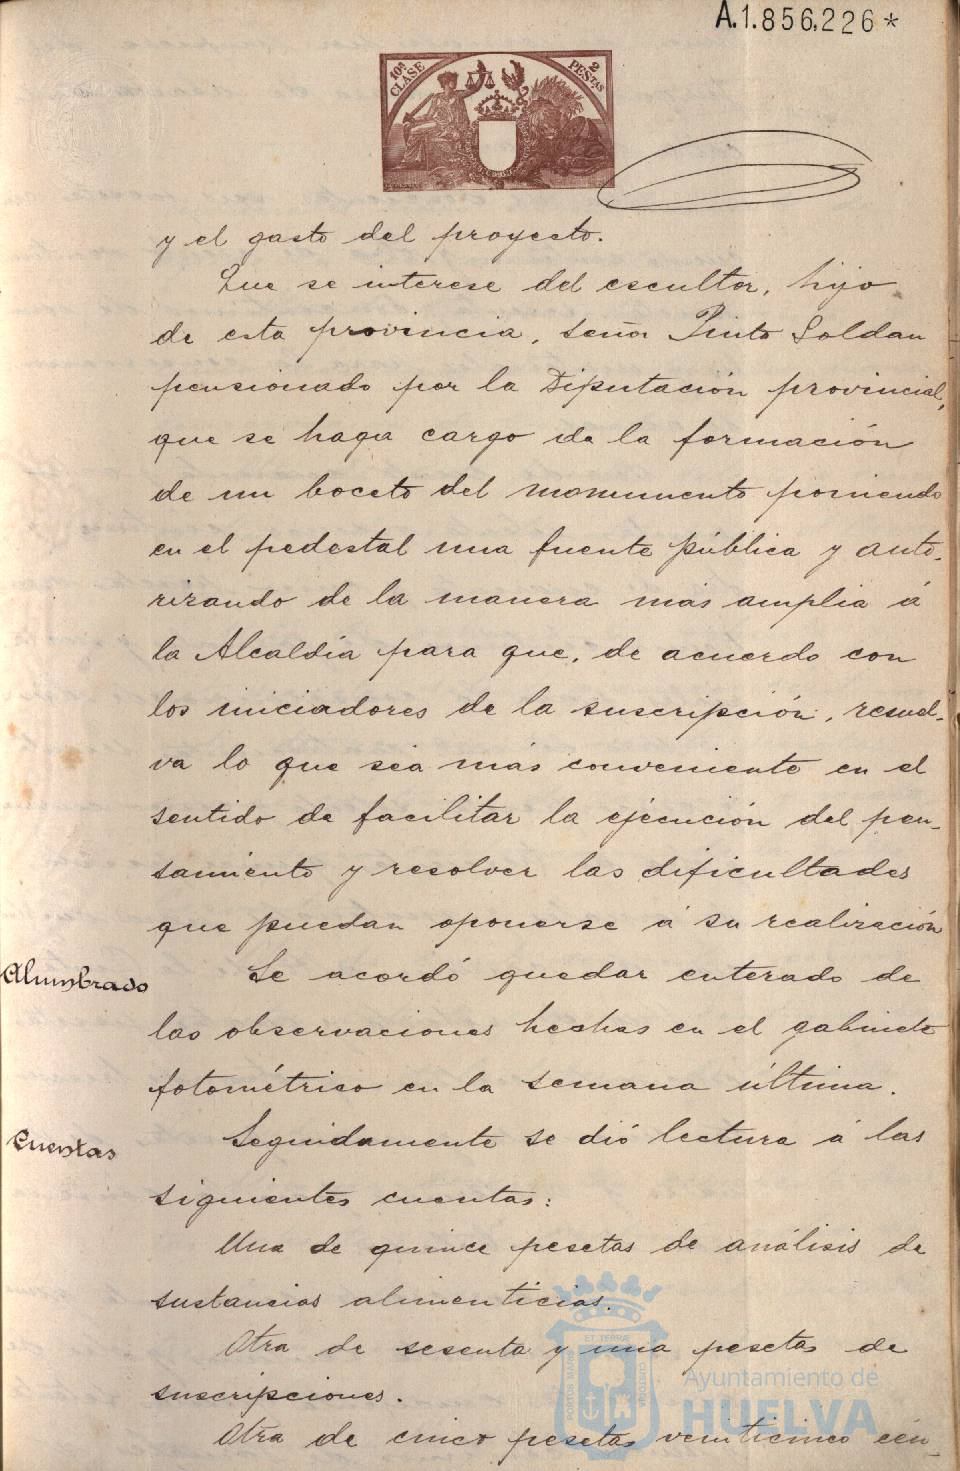 A.1.856,226*
10ª CLASE
2 PESTAS
y el gasto del proyecto.
Que se interese del escultor, hijo
de esta provincia, señor Pinto Soldan
pensionado por la Diputación provincial,
que se haga cargo de la formación
de un boceto del monumento poniendo
en el pedestal una fuente pública y auto-
rizando de la manera mas amplia á
la Alcaldía para que, de acuerdo con
los iniciadores de la suscripción, resuel-
va lo que sea más conveniente en el
sentido de facilitar la ejécución del pen-
samiento y resolver las dificultades
que puedan oponerse á su realización
Alumbrado
Se acordó quedar enterado de
las observaciones hechas en el gabinete
fotométrico en la semana última.
Cuentas
Seguidamente se dió lectura á las
siguientes cuentas:
Una de quince pesetas de análisis de
sustancias alimenticias.
Otra de sesenta y una pesetas de
suscripciones.
Otra de cinco pesetas veinticinco cén-
PORTUS MARIS ET TERRAE CUSTODIA
Ayuntamiento de
HUELVA